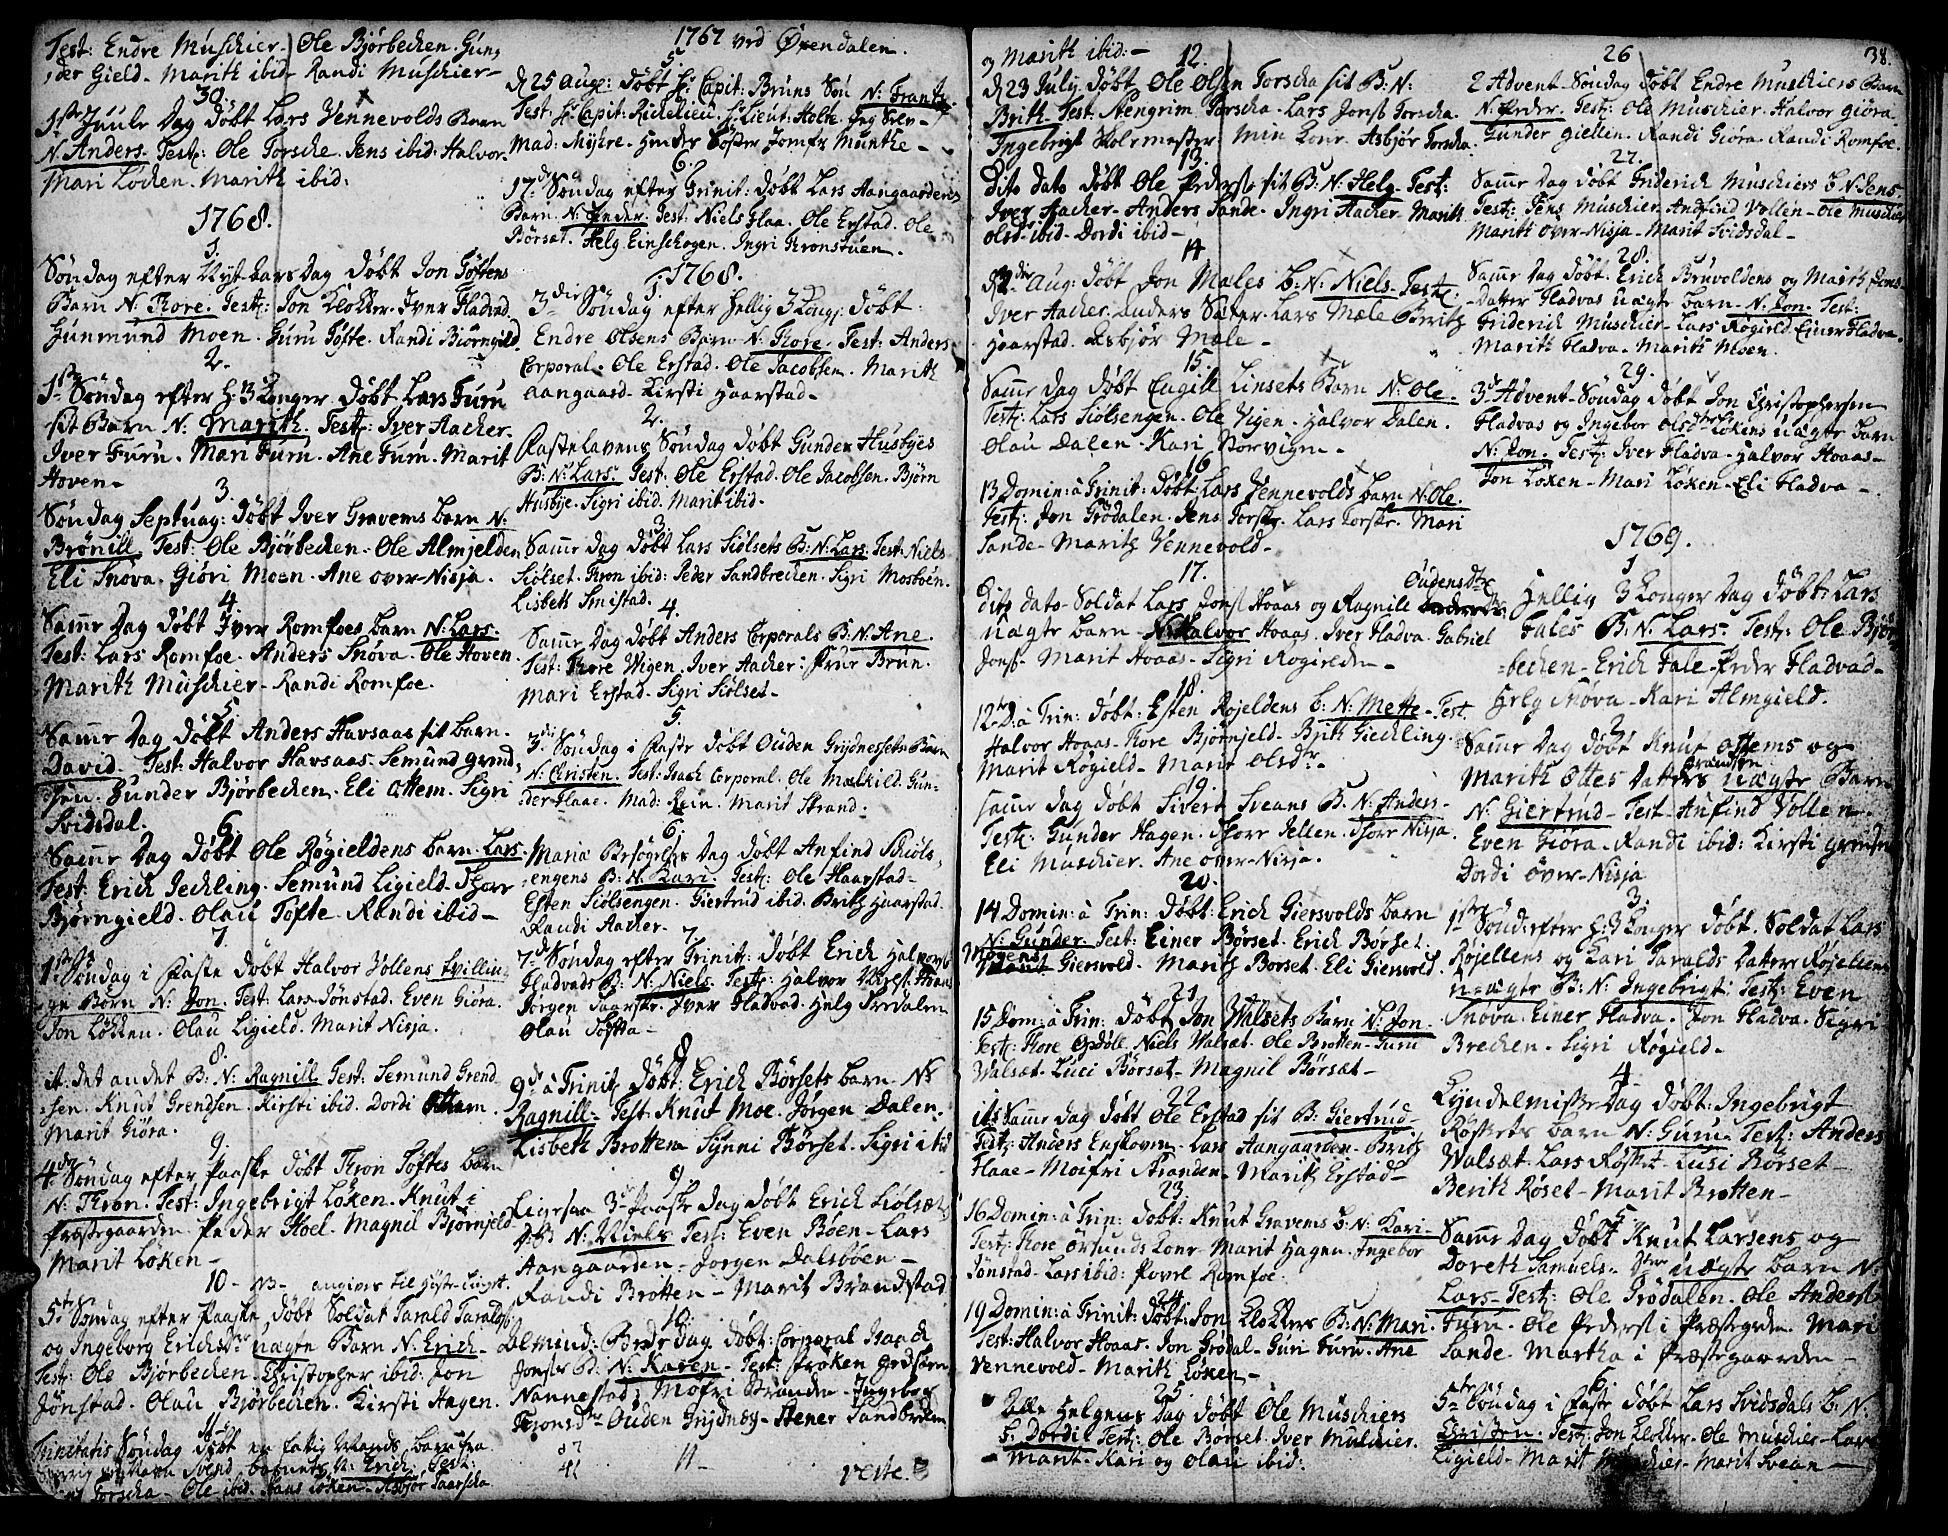 Test: Endre Muschier. Ole Bjørbechen. Gun-
der Gield. Marith ibid. Randi Muschier-
30.
1ste Juule Dag døbt Lars Vennevolds Barn
N. Anders. Test: Ole Torske. Jens ibid: Halvor
Mari Løken. Marith ibid:
1768.
1.
Søndag efter Nyt-Aarsdag døbt Jon Tøftens
Barn N: Thore. Test: Jon Klokker. Iver Fladvad.
Gunmund Moen. Guru Tøfte. Randi Biørngield
2.
1ste Søndag efter H: 3 Konger døbt Lars Furu
sit Barn N: Marith. Test: Iver Aacker.
Iver Furu. Mari Furu. Ane Furu. Marit
Hoven-
3.
Søndag Septuag: døbt Iver Gravems barn N.
Brønill Test: Ole Bjørbechen. Ole Almjelden
Eli Snøva. Giøri Moen. Ane over-Nisja.
4.
Samme Dag døbt Iver Romfoes barn N: Lars.
Test: Lars Romfoe. Anders Snøva. Ole Hoven
Marith Muschier. Randi Romfoe.
5.
Samme Dag døbt Anders Havsaas sit barn.
David. Test: Halvor Havsaas. Semund Grend-
sen. Gunder Bjørbechen. Eli Ottem. Sigri
Svidsdal.
6.
Samme Dag døbt Ole Røgieldens barn. Lars
Test: Erich Jechling. Semund Ligield. Thore
Bjørngield. Olau Tøfte. Randi ibid-
7.
1ste Søndag i Faste døbt Halvor Vollens tvillin-
ge Børn N: Jon. Test: Lars Jønstad. Even Giøra.
Jon Løkken. Olau Ligield. Marit Nisja.
8.
it: det andet B: N: Ragnill Test: Semund Grend
sen. Knut Grendsen. Kirsti ibid. Dordi Ottem.
Marit Giøra.
9.
4de Søndag efter Paaske døbt Thron Tøftes barn
N: Thron. Test: Ingebrigt Løken. Knut i
Præstgaarden. Peder Hoel. Magnil Bjørnjeld
Marit Løken-
10- NB- angives til
5te Søndag efter Paaske døbt Soldat Tarald Taralds
og Ingeborg Erichsdtr uægte Barn N. Erich.
Test: Ole Bjørbechen. Christopher ibid. Jon
Jønstad. Olau Bjørbechen. Kirsti Hagen.
11
Trinitatis Søndag døbt en fattig Mands barn fra
N: Erich. Test:
Torscha. Ole ibid. Hans Løken. Asbjør Taarscha

1767 ved Øxendalen.
5.
d 25 Aug: døbt Hr Capit: Bruns Søn N: Frantz.
Test: Hr Capit: Richelieu. Hr Lieut: Holte.
Mad: Myhre. Hendes Søster Jomfr Munthe-
6.
17de Søndag efter Trinit: døbt Lars Aangaardens
Barn. N: Peder. Test. Niels Flaa. Ole Erstad. Ole
Børset. Helg Einskogen. Ingri Kronstuen.
1768.
1.
3die Søndag efter Hellig 3 Konge: døbt
Endre Olsens Barn N: Thore. Test: Anders
Corporal. Ole Erstad. Ole Jacobsen. Marith
Aangaard. Kirsti Haarstad-
2.
Fastelavens Søndag døbt Gunder Husbyes
B: N: Lars. Test: Ole Erstad. Ole Jacobsen. Bjørn
Husbye. Sigri ibid. Marit ibid-
3.
Samme Dag døbt Lars Siølsets B: N: Lars. Test: Niels
Siølset. Thron ibid: Peder Sandbrechen. Sigri Mosboen.
Lisbeth Smistad.
4.
Samme Dag døbt Anders Corporals B: N: Ane.
Test: Thore Vigen. Iver Aacker: Frue Brun.
Mari Erstad. Sigri Siølset-
5.
3die Søndag i Faste døbt Ouden Gridnessets Barn
N: Christen. Test: Isach Corporal. Ole Mælkild. Gun-
der Flaae. Mad: Rein. Marit Strand.
6.
Mariæ Besøgelses Dag døbt Anfind Siøls-
engens B: N: Kari. Test: Ole Haarstad-
Esten Siølsengen. Giertrud ibid. Brith Haarstad.
Randi Aacker.
7.
7de Søndag efter Trinit: døbt Erich Halvors
Fladvads B: N: Niels. Test: Halvor
Jørgen Taarske. Iver Fladvad. Helg Tredalen
Olau Tøfta-
8
9de à Trinit: døbt: Erich Børsets barn- N:
Ragnill- Test: Knut Moe. Jørgen Dalen.
Lisbeth Brotten. Synni Børset. Sigri ibid
9
Ligesaa 3de Paaske Dag døbt Erich Siølsæt
B: N: Niels Test: Even Bøen- Lars
Aangaarden- Jørgen Dalsbøen-
Randi Brotten- Marit Brandstad
10.
Almind: Bede Dag. døbt: Corporal Isaach
Jonsen B: N: Karen- Test: Frøken
Nannestad; Mofri Stranden- Ingeborg
Thronsdtr Ouden Gridnes- Stener Sandbreken
11-
reste. 3

3 Marith ibid:-
12.
d 23 July døbt Ole Olsen Torscha sit B: N:
Brith Test. Stengrim Torscha. Lars Jonss Torscha.
Ingebrigt Skolemester. Min Kone. Asbjør Torscha.
13.
Dito dato døbt Ole Peders: sit B: N: Helg- Test:
Iver Aacker- Anders Sande. Ingri Aacker. Marith
Olsd: ibid- Dordi ibid-
14
Aug: døbt Jon Mæles B: N: Niels- Test:
Iver Aacker. Anders Sæter- Lars Mæle Brith
Haarstad. Asbjør Mæle-
15.
Samme Dag døbt Engill Linsets Barn N: Ole.
Test: Lars Siølsengen. Ole Vigen. Halvor Dalen.
Olau Dalen. Kari Norvigen-
16
13 Domin: à Trinit: døbt: Lars Vennevolds barn N: Ole.
Test: Jon Grødalen. Jens Torske. Lars Torske. Mari
Sande- Marith Vennevold-
17.
Dito dato- Soldat Lars Jonss Hoaas og Ragnill Oudensdtr
uægte barn- N: Halvor Hoaas. Iver Fladva. Gabriel
Jonss- Marit Hoaas. Sigri Røgielden-
18.
12te D: à Trin: døbt: Esten Røjeldens B: N: Mette- Test.
Halvor Hoaas. Thore Bjørnjeld. Brith Giechling.
Marit Røgield- Marit Olsdtr-
19.
Samme dag døbt Sivert Sveans B: N: Anders-
Test: Gunder Hagen. Thore Jellen. Thore Nisja
Eli Muschier. Ane over-Nisja.
20.
14 Domin: à Trin: døbt: Erich Giersvolds barn
N: Gunder. Test: Einer Børset. Erich Børset.
Mogens Giersvold. Marith Børset. Eli Giersvold
21.
15 Dom: à Trin: døbt Jon Walsets Barn N: Jon.
Test: Thore Opdøll. Niels Walsæt. Ole Brotten. Guru
Walsæt- Luci Børsæt- Magnil Børsæt-
22
its Samme dag døbt Ole Erstad sit B: Giertrud
Test: Anders Enskoven- Lars Aangaarden- Brith
Flaae- Moifri Stranden- Marith Erstad-
23.
16 Domin: à Trin: døbt: Knut Gravems B: N: Kari-
Test: Thore Ørsunds Kone- Marit Hagen. Ingebor
Jønstad- Lars ibid: Povel Romfoe
24.
19 Domin: à Trinit: døbt: Jon Klokkers B: N: Mari.
Test: Halvor Hoaas. Jon Grødal- Guri Furu. Ane
Vennevold- Marith Løken-
25.
Alle Helgens Dag døbt Ole Muschiers
B: Dordi. Test: Ole Børset. Iver Muschier.
Marit- Kari og Olau ibid:

38.
26
2 Advent-Søndag døbt Endre Muschiers Barn
N: Peder. Test: Ole Muschier. Halvor Giøra
Gunder Giellen. Randi Giøra. Randi Romfoe.
27.
Samme Dag døbt Friderich Muschiers B: N: Jens
Test: Jens Muschier. Andfind Vollen- Ole Muschier
Marith over-Nisja- Marit Svidsdal-
28.
Samme Dag døbt. Erich Bruvoldens og Marith Jons-
Datter Fladvas uægte barn- N: Jon. Test:
Friderich Muschier- Lars Røgield. Einer Fladva.
Marith Fladva- Marith Moen.
29.
3de Advent-Søndag døbt Jon Christophersen
Fladvas og Ingebor Olsdtr Løkens uægte barn
N: Jon. Test: Iver Fladva- Halvor Hoaas-
Jon Løken- Mari Løken- Eli Fladva-
1769.
1
Hellig 3 Konger Dag døbt: Lars
Fales B: N: Lars. Test: Ole Bjør-
bechen- Erich Fale- Peder Fladvad-
Helg Snøva- Kari Almgield.
2.
Samme Dag døbt Knut Ottems og
Marith Ottes Datters uægte Barn
N: Giertrud- Test- Anfind Vollen-
Even Giøra- Randi ibid: Kirsti Grendsen
Dordi over-Nisja
3.
1ste Sønd: efter H: 3 Konger døbt. Soldat Lars
Røjellens og Kari Taralds Datters Røjellens
uægte B: N: Ingebrigt. Test: Even
Snøva. Einer Fladva. Jon Fladva. Sigri
Brechen- Sigri Røgield-
4.
Kyndelmisse Dag døbt: Ingebrigt
Røssets barn N: Guru- Test: Anders
Walsæt- Lars Røset- Lusi Børset-
Berith Røset- Marit Brotten-
5.
Samme Dag døbt Knut Larsens og
Doreth Samuels- dtter uægte barn N:
Lars- Test: Ole Grødalen. Ole Anders
Furu- Ole Pederss i Præstegrden. Mari
Sande- Martha i Præstegaarden-
6.
5te Søndag i Faste døbt Lars Svidsdals B: N:
Christen- Test: Jon Klokker- Ole Muschier- Lars
Ligield- Marit Muschier- Marit Svean-